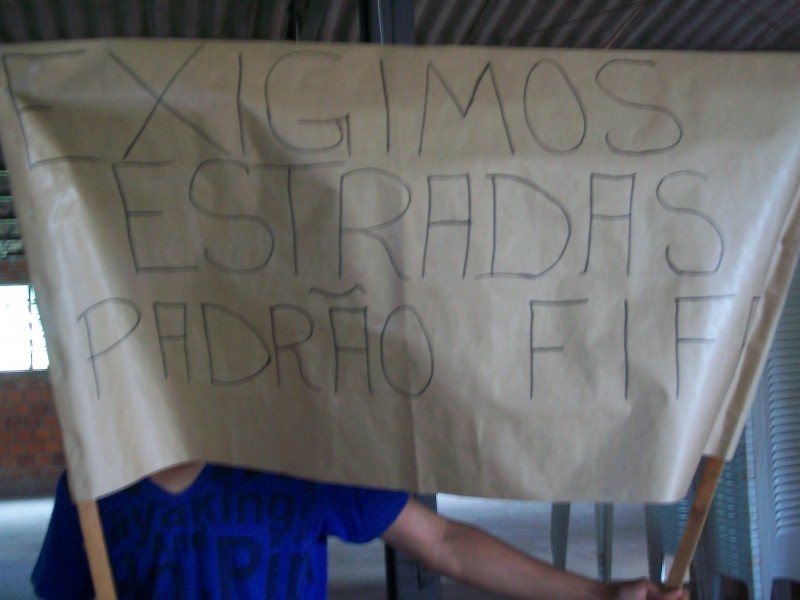 EXIGIMOS
ESTRADAS
PADRÃO FIFA